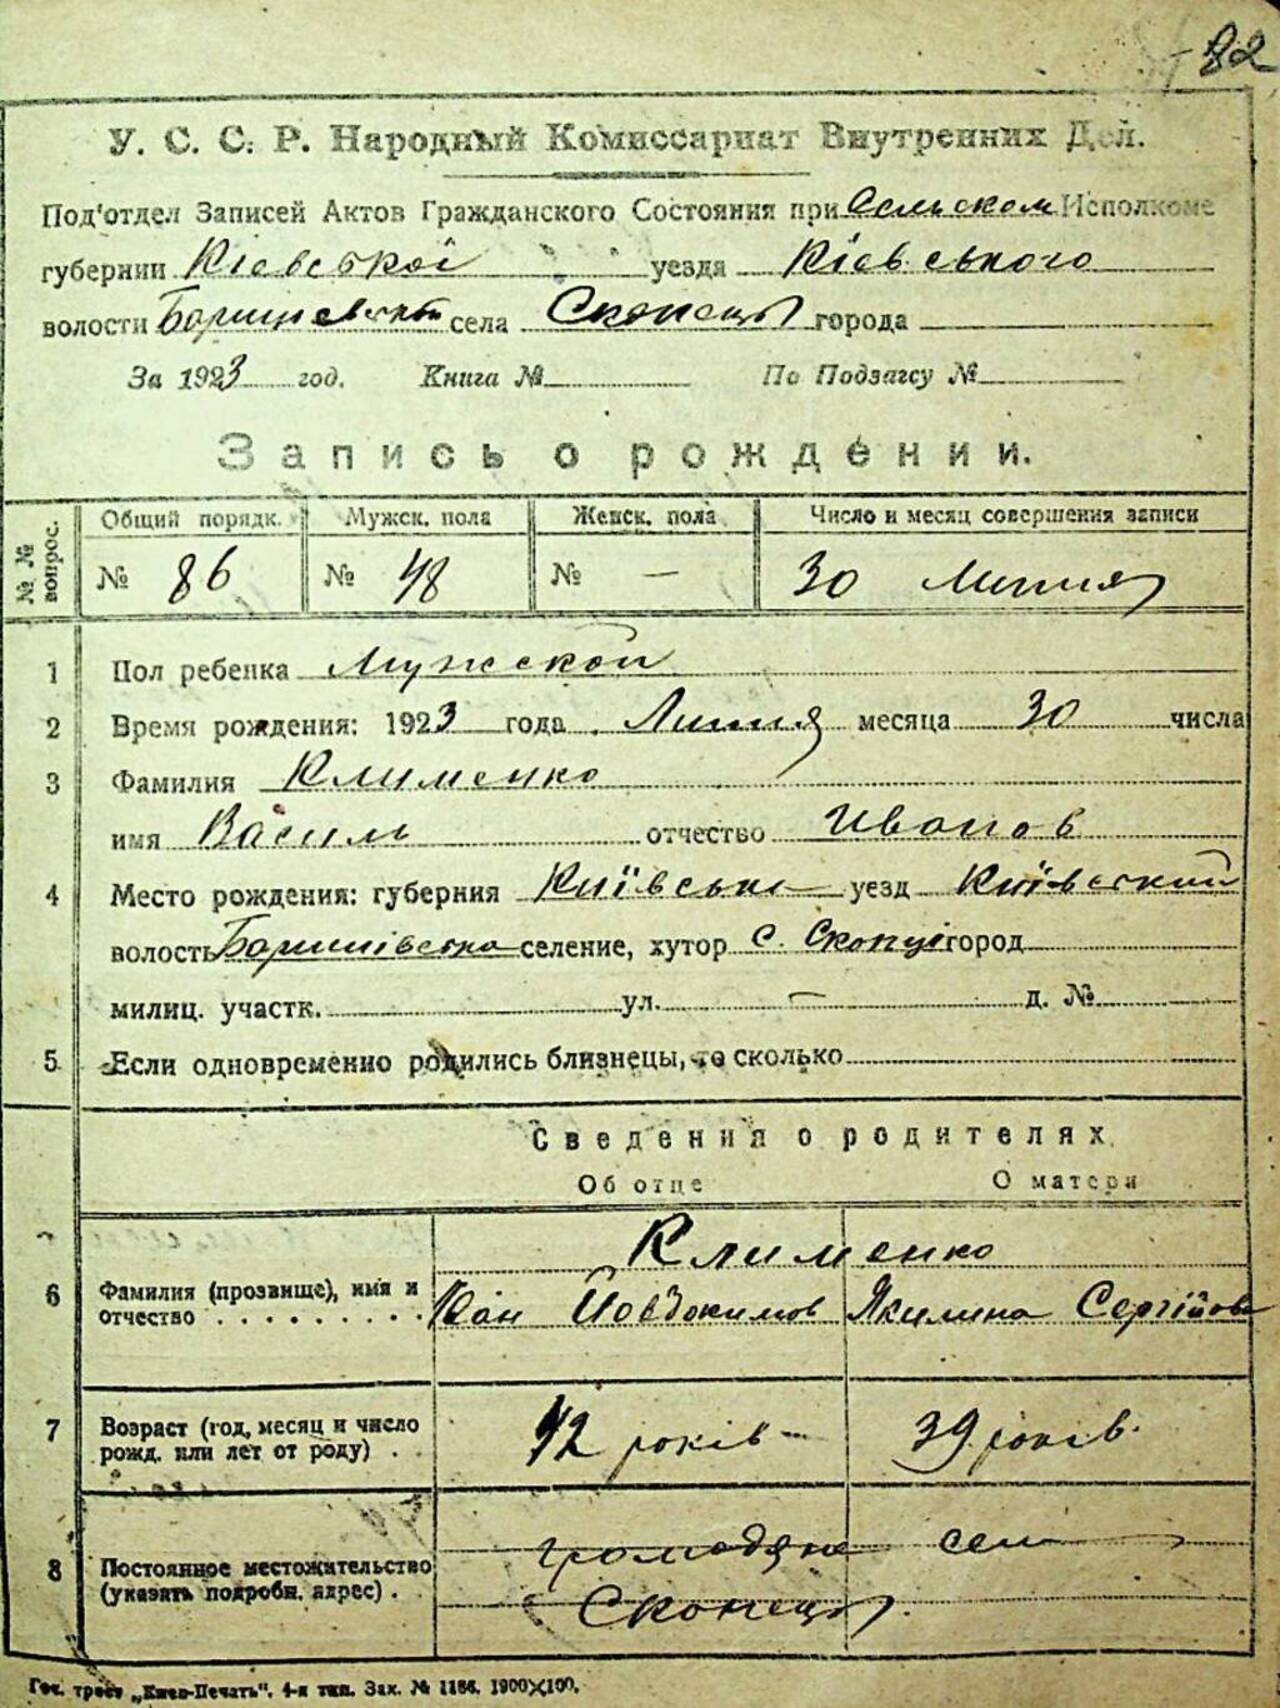 82
У. С. С. Р. Народный Комиссариат Внутренних Дел.
Под'отдел Записей Актов Гражданского Состояния при Сельском Исполкоме
губернии Кіевської уезда Кіевського
волости села Скопець города
За 1923 год. Книга № По Подзагсу №
Запись о рождении.
№ № вопрос. Общий порядк. Мужск. пола Женск. пола Число и месяц совершения записи
№ 86 № 48 № — 30 Липня
1 Пол ребенка Мужской
2 Время рождения: 1923 года Липня месяца 30 числа
3 Фамилия Клименко
имя Василь отчество Иванов
4 Место рождения: губерния Київська уезд Київський
волость Баришівська селение, хутор с. Скопці город
милиц. участк. ул. — д. №
5 Если одновременно родились близнецы, то сколько
Сведения о родителях
Об отце О матери
Клименко
6 Фамилия (прозвище), имя и
отчество . . . . . . . . . Іван Йовдокимов Якилина Сергійова
7 Возраст (год, месяц и число
рожд. или лет от роду) . . 42 років 39 років.
8 Постоянное местожительство
(указать подробн. адрес) . громадяне села
Скопець.
Гос. трест „Киев-Печать". 4-я тип. Зах. № 1166. 1900×100.